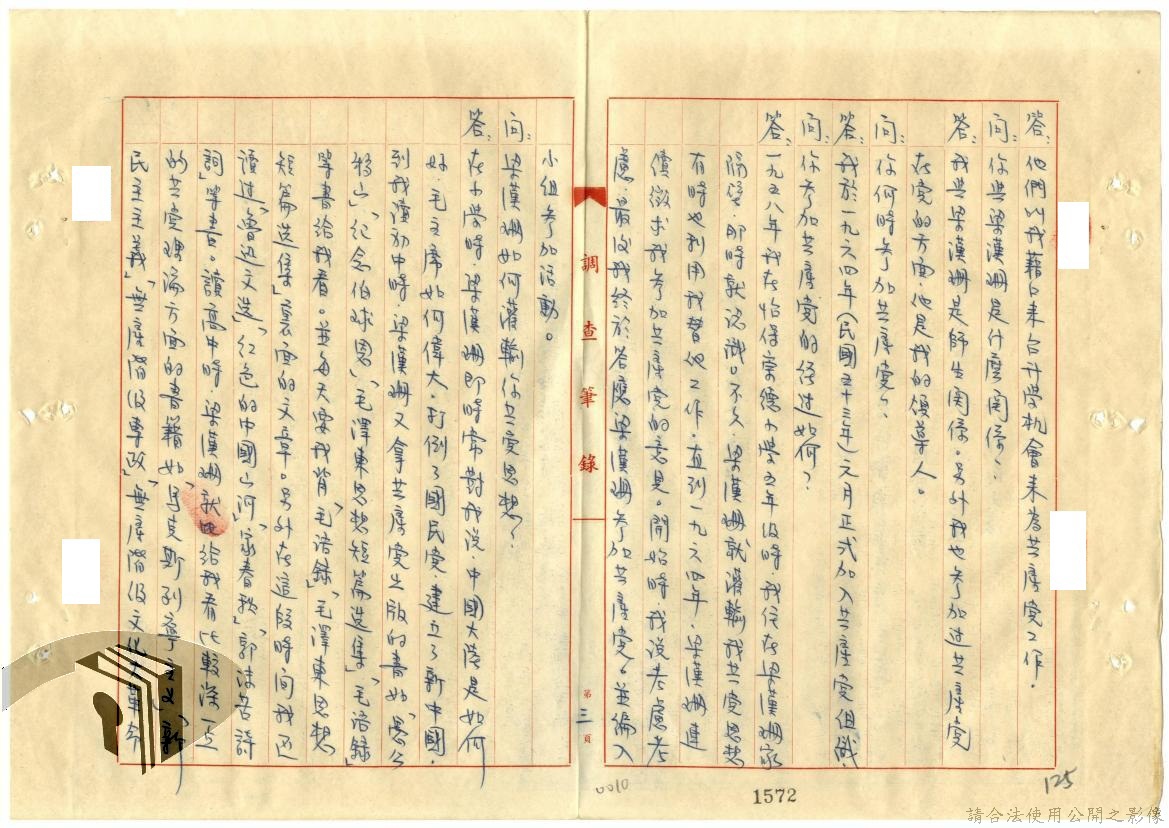 答：他們以我藉口來台升學机會来為共產党工作．
问：你与梁漢珊是什麼関係？
答：我与梁漢珊是師生関係。另外我也参加过共產党
在党的方面，他是我的領導人。
问：你何時参加共產党？
答：我於一九六四年（民國五十三年）元月正式加入共產党組織，
问：你参加共產党的经过如何？
答：一九五八年我在怡保崇德小学五年级時，我住在梁漢珊家
隔壁，那時就認識。不久，梁漢珊就灌輸我共党思想
有時也利用我替他工作，直到一九六四年，梁漢珊建
值徵求我参加共產党的意見。開始時，我说考慮考
慮，最後我終於答應梁漢珊参加共產党。並編入
調查筆錄
第三頁
小组参加活動。
问：梁漢珊如何灌輸你共党思想？
答：在小學時，梁漢珊即時常對我说，中國大陸是如何
好，毛主席如何偉大，打倒了國民党，建立了新中國，
到我讀初中時，梁漢珊又拿共產党出版的書如「愚公
移山」「纪念白球恩」「毛澤東思想短篇选集」「毛语録」
等書给我看。並每天要我背「毛语録」「毛澤東思想
短篇选集」裏面的文章。另外在這段時间我还
讀过「鲁迅文选」「红色的中國山河」「家春秋」「郭沫若詩
詞」等書。讀高中時，梁漢珊就给我看比較深一点
的共党理論方面的書籍如「馬克斯列寧主义」「新
民主主義」「無產階级專政」「無產階级文化大革命
0010
1572
125
請合法使用公開之影像